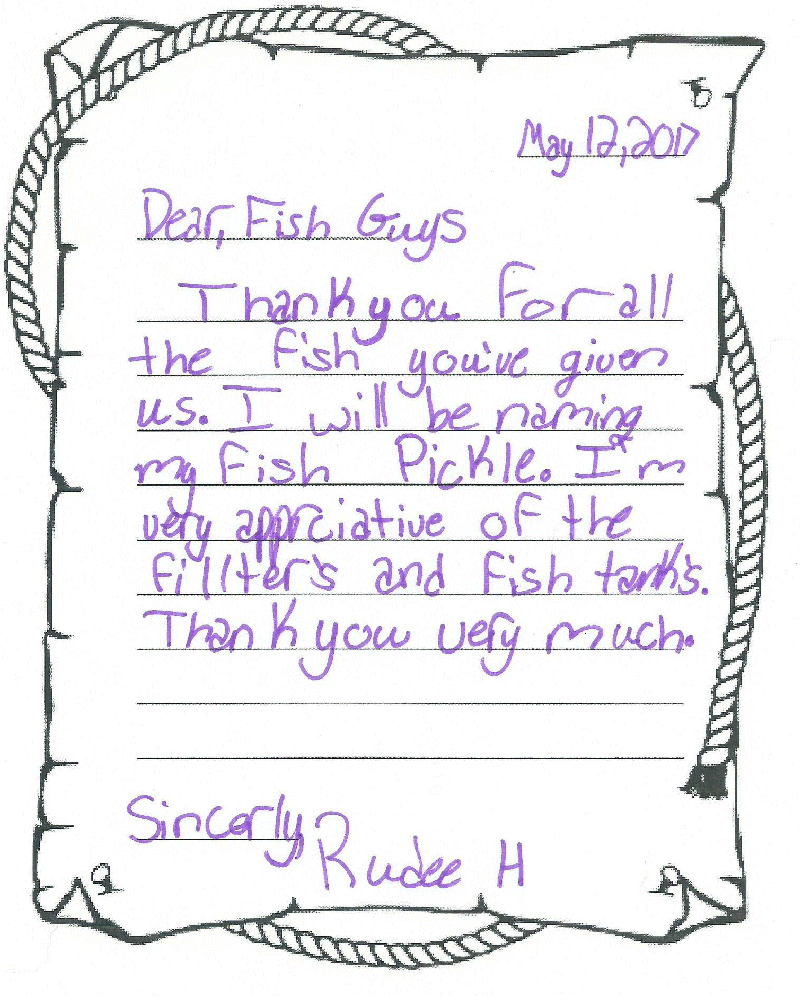 May 12, 2017
Dear, Fish Guys
Thank you for all
the fish you've given
us. I will be naming
my fish Pickle. I'm
very apprciative of the
fillter's and fish tank's.
Thank you very much.
Sincerly,
Rudee H